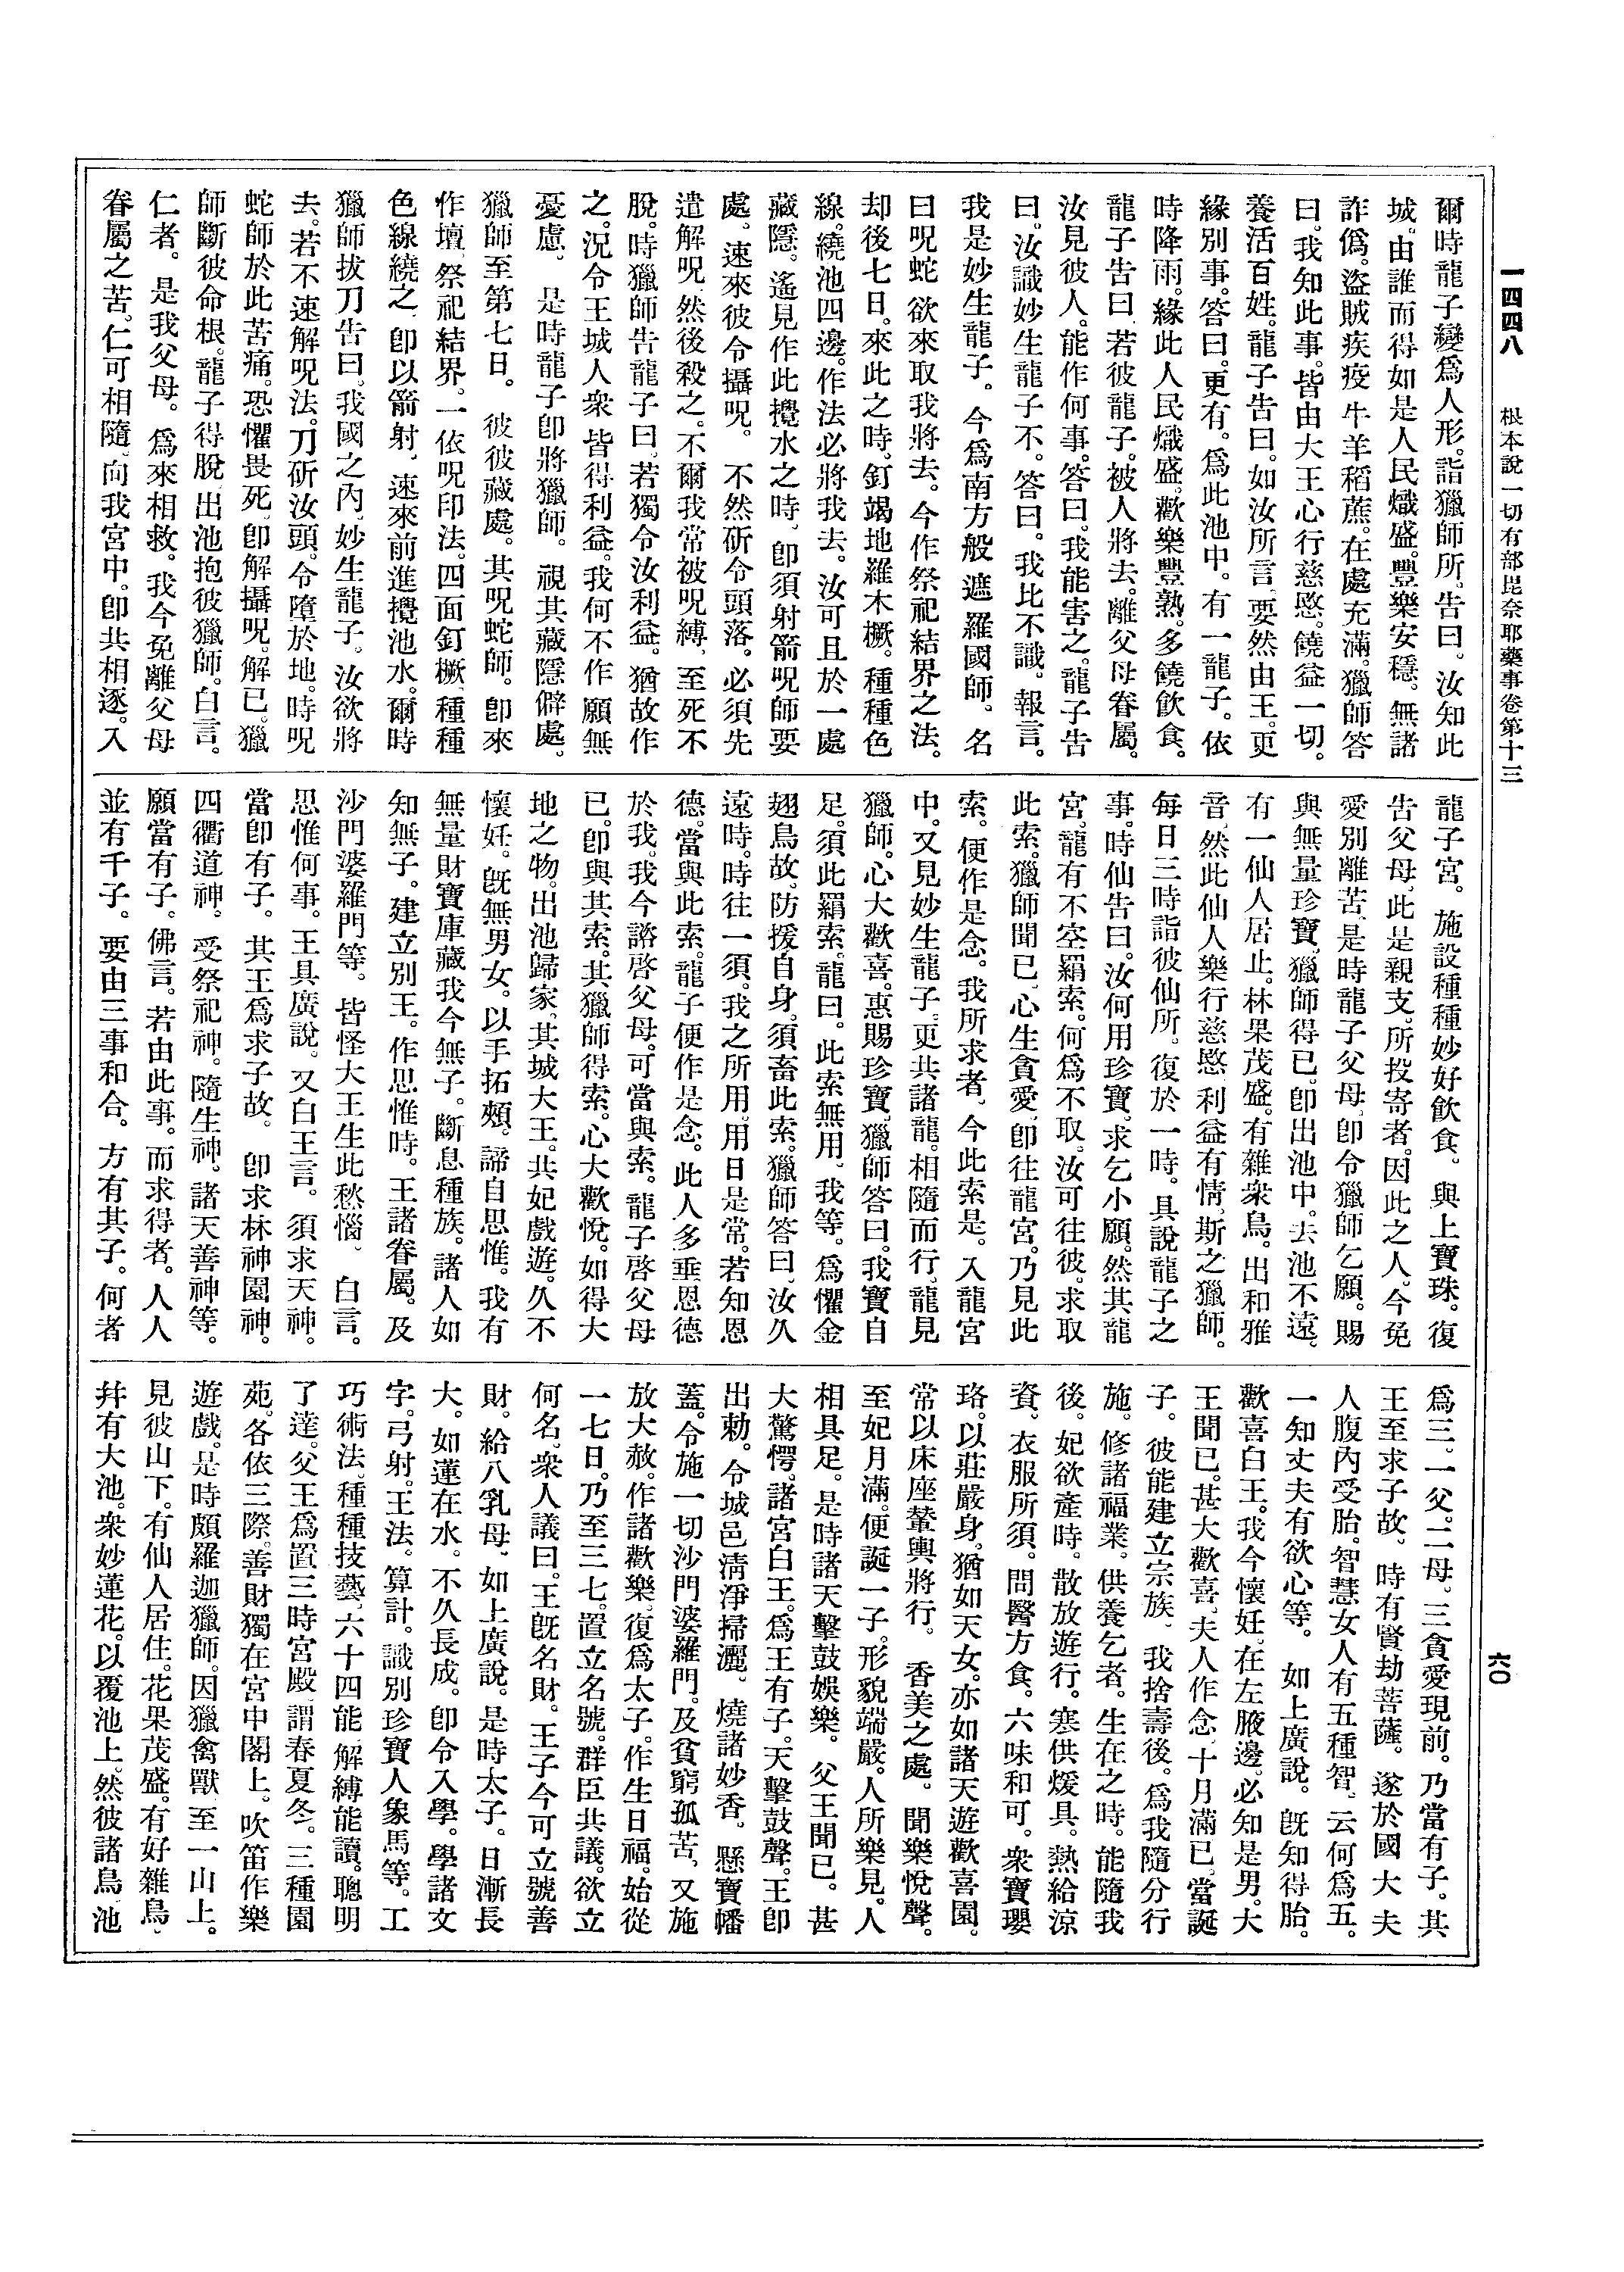 一四四八　根本說一切有部毘奈耶藥事卷第十三
六〇
爾時龍子變爲人形。詣獵師所。告曰。汝知此
城。由誰而得如是人民熾盛。豐樂安穩。無諸
詐僞。盜賊疾疫、牛羊稻蔗。在處充滿。獵師答
曰。我知此事。皆由大王心行慈愍。饒益一切。
養活百姓。龍子告曰。如汝所言、要然由王。更
緣別事。答曰。更有。爲此池中。有一龍子。依
時降雨。緣此人民熾盛。歡樂豐熟。多饒飲食。
龍子告曰、若彼龍子。被人將去。離父母眷屬。
汝見彼人。能作何事。答曰。我能害之。龍子告
曰。汝識妙生龍子不。答曰。我比不識。報言。
我是妙生龍子。今爲南方般遮羅國師。名
曰呪蛇、欲來取我將去。今作祭祀結界之法。
却後七日。來此之時。釘竭地羅木橛。種種色
線。繞池四邊。作法必將我去。汝可且於一處
藏隱。遙見作此攪水之時、卽須射箭呪師要
處。速來彼令攝呪。不然斫令頭落。必須先
遣解呪、然後殺之。不爾我常被呪縛、至死不
脫。時獵師告龍子曰、若獨令汝利益。猶故作
之。況令王城人衆、皆得利益。我何不作、願無
憂慮。是時龍子卽將獵師。視其藏隱僻處。
獵師至第七日。彼彼藏處。其呪蛇師。卽來
作壇、祭祀結界。一依呪印法。四面釘橛、種種
色線繞之、卽以箭射、速來前進攪池水。爾時
獵師拔刀告曰。我國之內、妙生龍子。汝欲將
去。若不速解呪法。刀斫汝頭。令墮於地。時呪
蛇師於此苦痛。恐懼畏死、卽解攝呪。解已。獵
師斷彼命根。龍子得脫出池抱彼獵師。白言。
仁者。是我父母。爲來相救。我今免離父母
眷屬之苦。仁可相隨、向我宮中。卽共相逐。入
龍子宮。施設種種妙好飲食。與上寶珠。復
告父母、此是親支。所投寄者。因此之人。今免
愛別離苦、是時龍子父母、卽令獵師乞願。賜
與無量珍寶、獵師得已。卽出池中。去池不遠。
有一仙人居止。林果茂盛。有雜衆鳥。出和雅
音、然此仙人樂行慈愍、利益有情。斯之獵師。
每日三時詣彼仙所。復於一時。具說龍子之
事。時仙告曰。汝何用珍寶。求乞小願。然其龍
宮。龍有不空羂索。何爲不取。汝可往彼。求取
此索。獵師聞已。心生貪愛、卽往龍宮。乃見此
索。便作是念。我所求者、今此索是。入龍宮
中。又見妙生龍子、更共諸龍。相隨而行、龍見
獵師。心大歡喜。惠賜珍寶、獵師答曰。我寶自
足。須此羂索。龍曰。此索無用、我等。爲懼金
翅鳥故、防援自身。須畜此索。獵師答曰、汝久
遠時。時往一須。我之所用。用日是常。若知恩
德。當與此索。龍子便作是念。此人多垂恩德
於我。我今諮啓父母。可當與索。龍子啓父母
已。卽與其索。其獵師得索。心大歡悅。如得大
地之物。出池歸家、其城大王。共妃戲遊。久不
懷妊。旣無男女。以手拓頰。諦自思惟。我有
無量財寶庫藏我今無子。斷息種族。諸人如
知無子。建立別王。作思惟時。王諸眷屬。及
沙門婆羅門等。皆怪大王生此愁惱、白言。
思惟何事。王具廣說。又白王言。須求天神。
當卽有子。其王爲求子故。卽求林神園神。
四衢道神。受祭祀神。隨生神。諸天善神等。
願當有子。佛言。若由此事。而求得者。人人
並有千子。要由三事和合。方有其子。何者
爲三。一父。二母。三貪愛現前。乃當有子。其
王至求子故。時有賢劫菩薩。遂於國大夫
人腹內受胎。智慧女人有五種智。云何爲五。
一知丈夫有欲心等。如上廣說。旣知得胎。
歡喜白王。我今懷妊。在左腋邊。必知是男。大
王聞已。甚大歡喜、夫人作念、十月滿已。當誕
子。彼能建立宗族、我捨壽後。爲我隨分行
施。修諸福業、供養乞者。生在之時。能隨我
後。妃欲產時。散放遊行。寒供煖具。熱給涼
資。衣服所須。問醫方食。六味和可。衆寶瓔
珞。以莊嚴身。猶如天女。亦如諸天遊歡喜園。
常以床座輦輿將行。香美之處。聞樂悅聲。
至妃月滿。便誕一子。形貌端嚴。人所樂見。人
相具足。是時諸天擊鼓娛樂。父王聞已。甚
大驚愕。諸宮白王。爲王有子。天擊鼓聲。王卽
出勅。令城邑淸淨掃灑、燒諸妙香。懸寶幡
蓋。令施一切沙門婆羅門。及貧窮孤苦、又施
放大赦。作諸歡樂。復爲太子。作生日福。始從
一七日。乃至三七。置立名號。群臣共議。欲立
何名。衆人議曰。王旣名財。王子今可立號善
財。給八乳母、如上廣說。是時太子。日漸長
大。如蓮在水。不久長成。卽令入學。學諸文
字。弓射。王法。算計。識別珍寶人象馬等。工
巧術法。種種技藝、六十四能、解縛能讀。聰明
了達。父王爲置三時宮殿、謂春夏冬。三種園
苑。各依三際。善財獨在宮中閣上。吹笛作樂
遊戲。是時頗羅迦獵師。因獵禽獸、至一山上。
見彼山下。有仙人居住。花果茂盛。有好雜鳥、
幷有大池。衆妙蓮花。以覆池上。然彼諸鳥、池